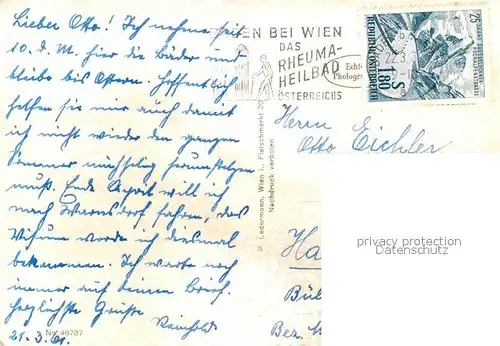 Lieber Otto! Ich nehme seit
10. d. M. hier die Bäder und
bleibe bis Ostern. Hoffentlich
helfen sie mir auch damit
ich nicht wieder den ganzen
Sommer mühselig herumstelzen
muß. Ende April will ich
nach Warnsdorf fahren, das
Visum werde ich diesmal
bekommen. Ich warte noch
immer auf deinen Brief.
Herzlichste Grüße
Reinhold
21.3.61.
No. 48737
P. Ledermann, Wien I., Fleischmarkt 20
Nachdruck verboten
EN BEI WIEN
DAS
RHEUMA-
HEILBAD
ÖSTERREICHS
Echt-
Photogr
REPUBLIK ÖSTERREICH
1.80 S
Herrn
Otto Eichler
Ha
Bül
Bez.
privacy protection
Datenschutz